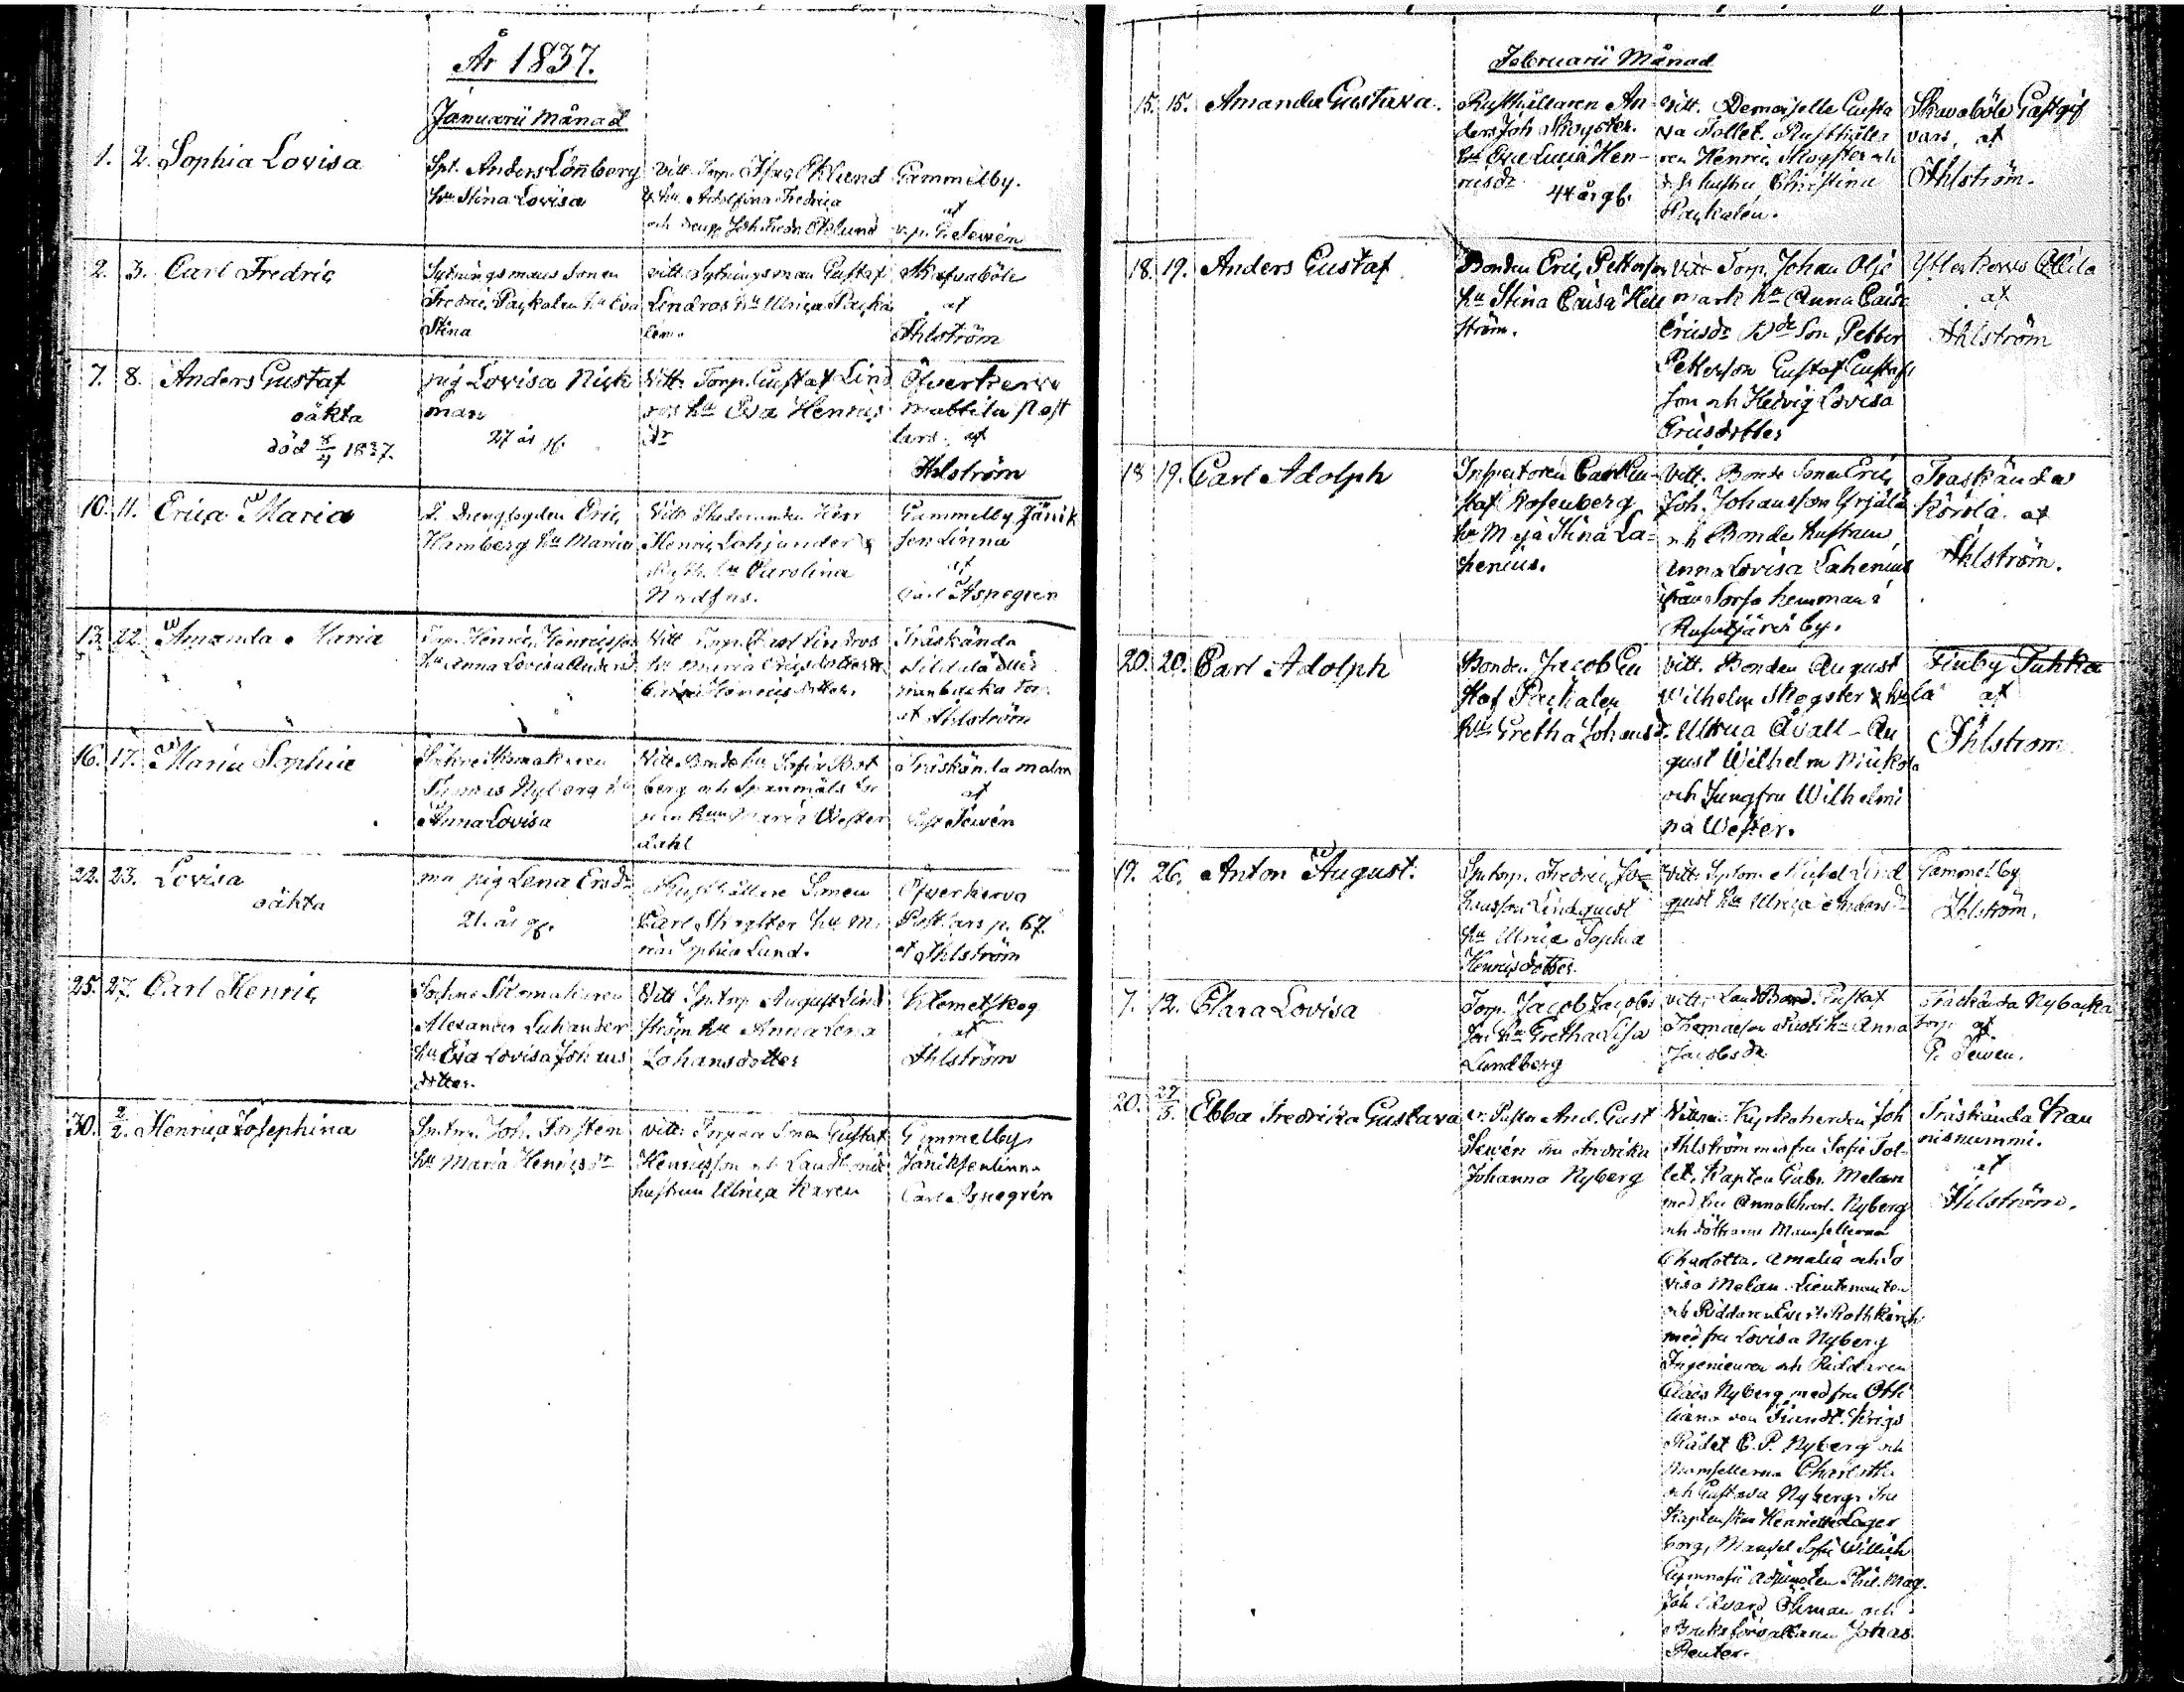 År 1837.
Januarii Månad
1. 2. Sophia Lovisa
Spt. Anders Lönnberg
hu Stina Lovisa
Vitt. Torp. Isac Eklund
& hu Adolfina Fredrica
och dreng Joh. Fredr. Eklund
Gammelby.
af
v. p. G. Tewén
2. 3. Carl Fredric
Sytningsmans Sonen
Fredric Packalen hu Eva
Stina
vitt. Sytningsman Gustaf
Lindros hu Ulrica Packa
len.
Skafvaböle
af
Ahlström
7. 8. Anders Gustaf
oäkta
död 1837.
pig Lovisa Nick
man
27 år gl.
Vitt. Torp. Gustaf Lind
ros hu Eva Henrics
dr
Öfverkervo
Mattila
af
Ahlström
10. 11. Erica Maria
Drengfogden Eric
Hamberg hu Maria
Vitt. Studeranden Herr
Henric Lohjander &
hu Carolina
Nordfors.
Gammelby Jänik
senlinna
af
Carl Aspegren
13. 22. Amanda Maria
Torp. Henric Henricsson
hu Anna Lovisa Andersd.
Vitt. Torp. Carl Lindros
hu Maria Ericsdotter &
Henricsdotter.
Träskända
backa Torp.
af Ahlström
16. 17. Maria Sophia
Sockne Skomakaren
Thomas Nyberg hu
Anna Lovisa
Vitt. Bonde hu Sofia Bot
berg och
Maria Wester
dahl
Träskända malm
af
Tewén
22. 23. Lovisa
oäkta
pig Lena Ersdr
21. år gl.
Rusthållare Sonen
Carl Skogster hu Ma
ria Sophia Lund.
Öfverkervo
p. 67.
af Ahlström
25. 27. Carl Henric
Sockne Skomakaren
Alexander Luhander
hu Eva Lovisa Johans
dotter.
Vitt. Sp. torp. August Lind
ström hu Anna Lena
Johansdotter
Klemetskog
af
Ahlström
30. 2/2. Henrica Josephina
Sp. torp. Joh. Forsten
hu Maria Henricsdr
Vitt. Torpare Sonen Gustaf
Henricsson och Landbonde
hustrun Ulrica Karen
Gammelby
Jäniksenlinna
Carl Aspegrén
Februarii Månad
15. 15. Amanda Gustava.
Rusthållaren An
ders Joh. Skogster.
hu Eva Lucia Hen-
ricsdr
44 år gl.
Vitt. Demoiselle Gusta
va Tollet. Rusthålla
ren Henric Skogster och
d:s hustru Christina
Packalén.
Skavaböle Gästgif
vars. af
Ahlström.
18. 19. Anders Gustaf
Bonden Eric Pettersson
hu Stina Caisa Hell
ström.
Vitt. Torp. Johan Olje
mark hu Anna Caisa
Ericsdr Bde Son Petter
Pettersson Gustaf Gustafs
son och Hedvig Lovisa
Ericsdotter
Ytterkervo Ollila
af
Ahlström
18. 19. Carl Adolph
Inspectoren Carl Gu-
staf Rosenberg
hu Maja Stina La=
henius.
Vitt. Bonde Sonen Eric
Joh. Johansson Yrjälä
och Bonde hustrun
Anna Lovisa Lahenius
från Torfa hemman i
Rusutjärvi by.
Träskända
Körölä. af
Ahlström.
20. 20. Carl Adolph
Bonden Jacob Gu
staf Packalen
hu Gretha Johansd.
Vitt. Bonden August
Wilhelm Skogster & hu
Ulrica Åvall - Au
gust Wilhelm Niukola
och Jungfru Wilhelmi
na Wester.
Finby Tuhka
la af
Ahlström
17. 26. Anton August.
Sp. torp. Fredric Jo=
hansson Lindquist
hu Ulrica Sophia
Henricsdotter.
Vitt. Sp. torp. Michel Lind
quist hu Ulrica Andersdr
Gammelby
Ahlström.
7. 12. Clara Lovisa
Torp. Jacob Jacobs
son hu Gretha Lisa
Lundberg
Vitt. Land Bond. Gustaf
Thomasson hu Anna
Jacobsdr
Träskända Nybacka
Torp. af
G. Tewén.
20. 27/3. Ebba Fredrika Gustava
v. Pastor And. Gust
Tewén fru Fredrika
Johanna Nyberg
Vittnen: Kyrkoherden Joh
Ahlström med fru Sofie Tol-
let, Kapten Gabr. Melan
med fru Anna Christ. Nyberg
och döttrarne Mamsellerna
Charlotta, Amalia och Lo
visa Melan. Lieutenanten
och Riddaren Evert Rothkirch
med fru Lovisa Nyberg
Ingenieuren och Riddaren
Claes Nyberg med fru Otti
liana von Krigs
Rådet C. P. Nyberg och
Mamsellerna Charlotta
och Gustava Nyberg. Fru
Kaptenskan Henriette Lager
borg, Mamsel Sofie Willich
Gymnasii Adjuncten Phil. Mag.
Joh. Edvard Öhman och
Bruksförvaltaren Johas
Reuter.
Träskända Kau
nisnummi.
af
Ahlström.